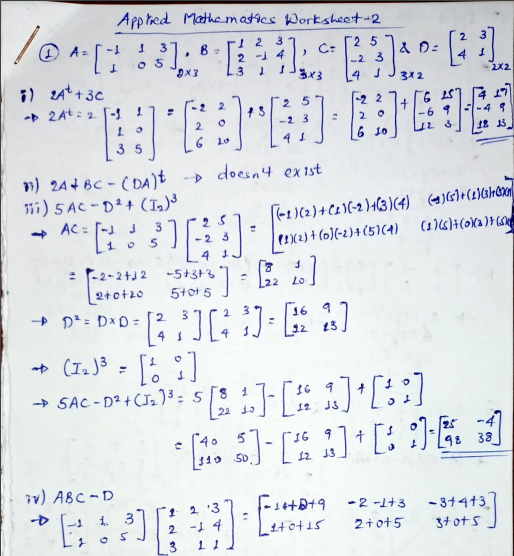 Applied Mathematics Worksheet-2
① A = [-1 1 3; 1 0 5]2x3, B = [1 2 3; 2 -1 4; 3 1 1]3x3, C = [2 5; -2 3; 4 1]3x2 & D = [2 3; 4 1]2x2
i) 2Aᵗ + 3C
→ 2Aᵗ = 2 [-1 1; 1 0; 3 5] = [-2 2; 2 0; 6 10] + 3 [2 5; -2 3; 4 1] = [-2 2; 2 0; 6 10] + [6 15; -6 9; 12 3] = [4 17; -4 9; 18 13]
ii) 2A + BC - (DA)ᵗ → doesn4 exist
iii) 5AC - D² + (I₂)³
→ AC = [-1 1 3; 1 0 5] [2 5; -2 3; 4 1] = [(-1)(2)+(1)(-2)+(3)(4) (-1)(5)+(1)(3)+(3)(1); (1)(2)+(0)(-2)+(5)(4) (1)(5)+(0)(3)+(5)(1)]
= [-2-2+12 -5+3+3; 2+0+20 5+0+5] = [8 1; 22 10]
→ D² = D×D = [2 3; 4 1] [2 3; 4 1] = [16 9; 12 13]
→ (I₂)³ = [1 0; 0 1]
→ 5AC - D² + (I₂)³ = 5 [8 1; 22 10] - [16 9; 12 13] + [1 0; 0 1]
= [40 5; 110 50] - [16 9; 12 13] + [1 0; 0 1] = [25 -4; 98 38]
iv) ABC - D
→ [-1 1 3; 1 0 5] [1 2 3; 2 -1 4; 3 1 1] = [-1+2+9 -2-1+3 -3+4+3; 1+0+15 2+0+5 3+0+5]